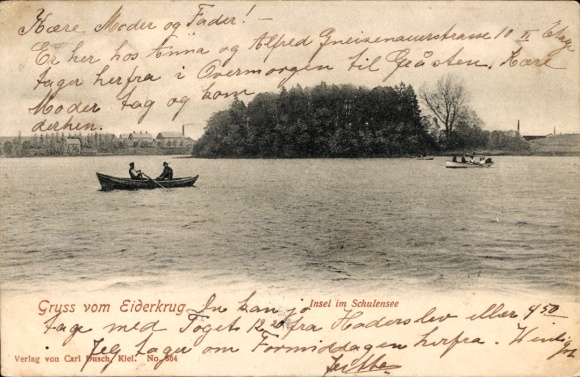 Kære Moder og Fader! —
Er her hos Anna og Alfred Gneisenauerstrasse 10 II Etag
tager herfra i Overmorgen til Kære
Moder tag og kom
derhen.
Gruss vom Eiderkrug.
Insel im Schulensee
kan jo
tage med Toget 12 20 fra Haderslev eller 4 50
Jeg tager om Formiddagen herfra.
Verlag von Carl Dusch, Kiel. No. 504